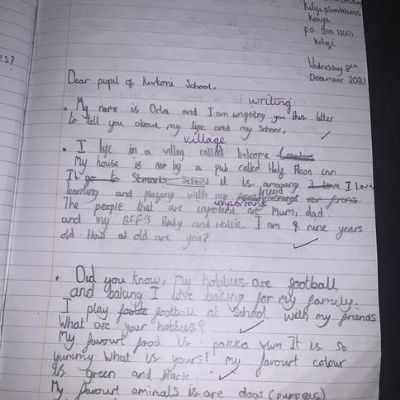 Kenya
P.O. Box
Wednesday 8th
December 2021
Dear pupil of School.
writing
• My name is Orla and I am wrighting you this leter
to tell you about my life and my School.
village
• I life in a villig called
My house is by a pub called Holy inn
It go to School it is amazing I love I love
learning and playing with my
friend
important
The people that are are Mum, dad
and my BFF's Ruby and Hollie. I am 9 nine years
old. How at old are you?
• Did you know, my hobbies are football
and baking I love baking for my family.
I play football at School with my friends
What are your hobbies?
My favourt food is yum It is so
yummy What is yours? My favourt colour
is green and black.
My favourt aminals is are dogs (puppys)